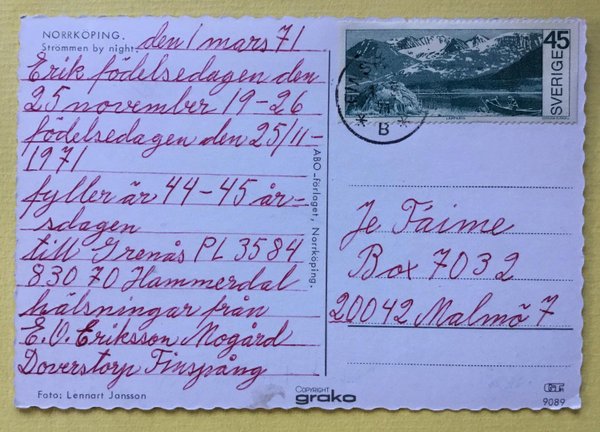 NORRKÖPING.
Strömmen by night.
den 1 mars 71
Erik födelsedagen den
25 november 19-26
födelsedagen den 25/11-
1971
fyller är 44-45 år-
sdagen
till Grenås PL 3584
830 70 Hammerdal
hälsningar från
E.O. Eriksson Mogård
Doverstorp Finspång
Foto: Lennart Jansson
ABO-förlaget, Norrköping.
COPYRIGHT
grako
SVERIGE 45
Je Taime
Box 7032
20042 Malmö 7
9089